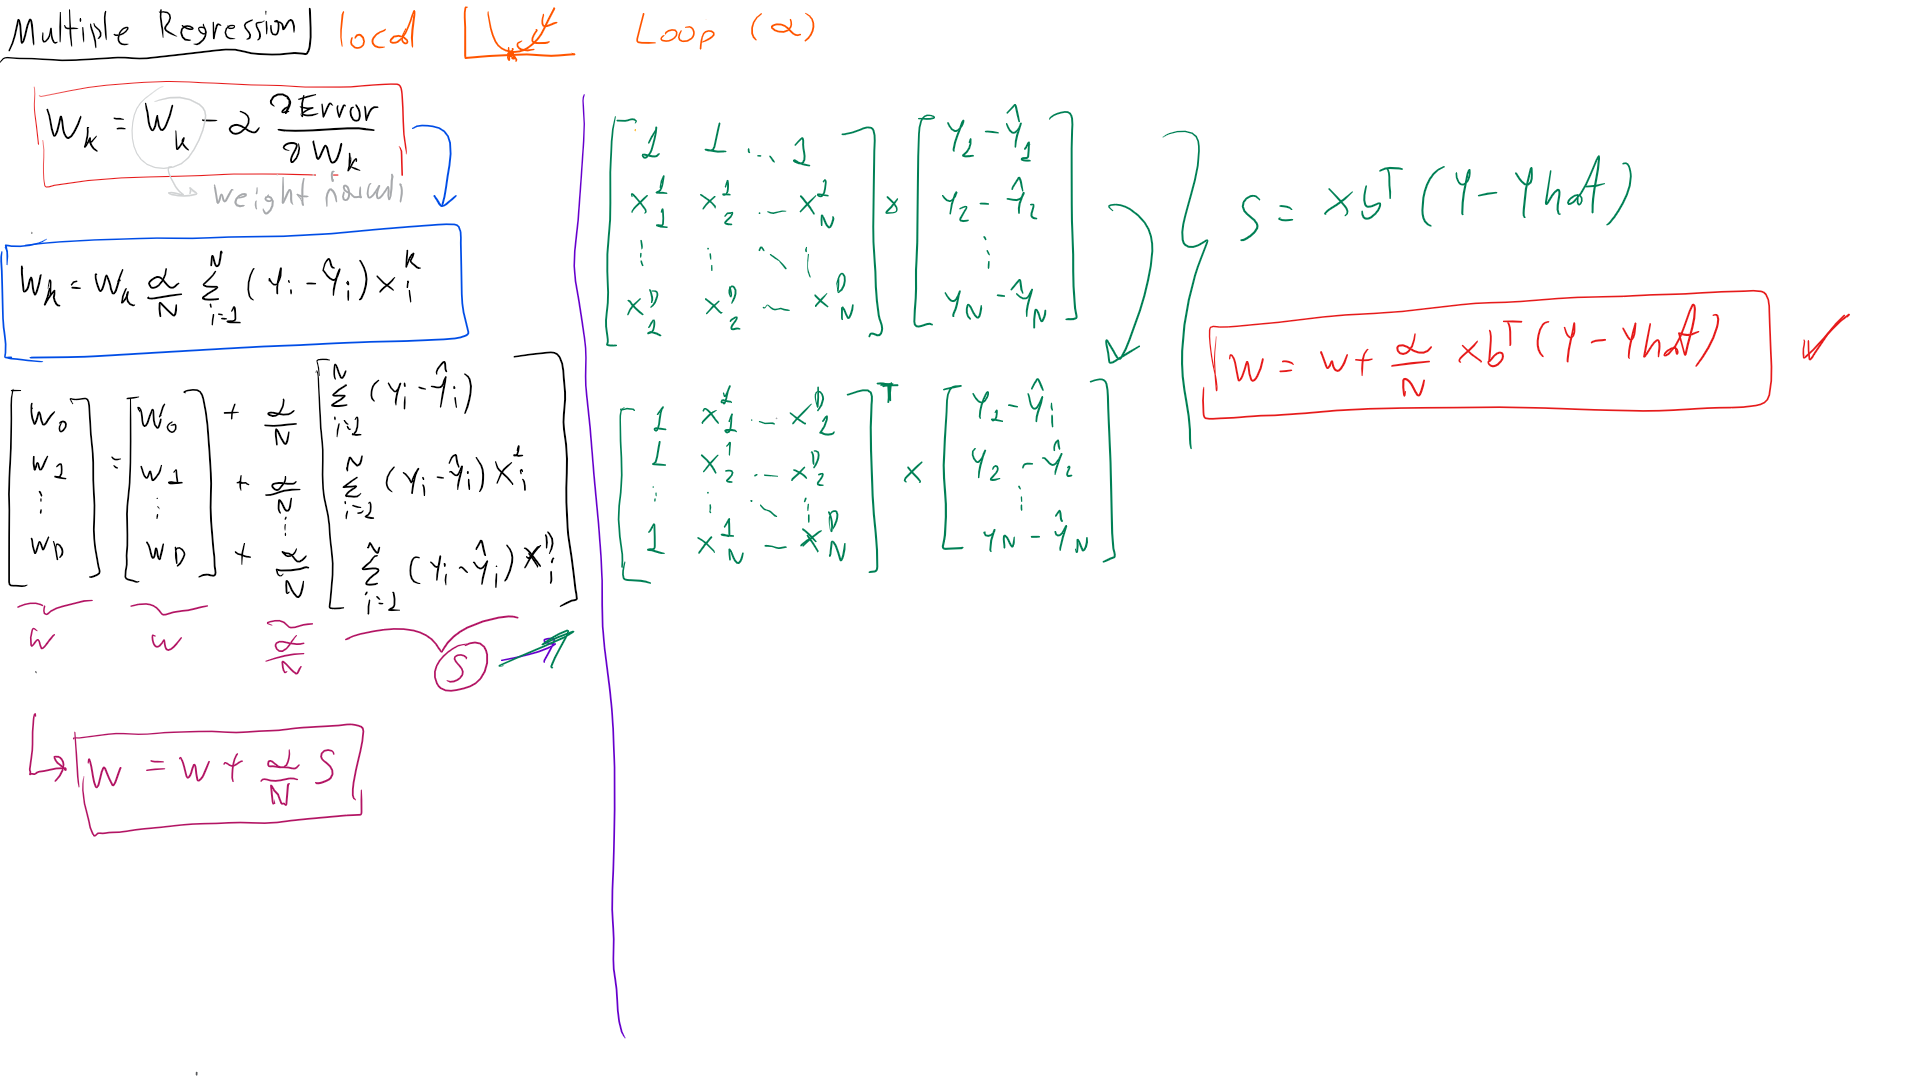 Multiple Regression local Loop (α)
W_k = W_k - α ∂Error / ∂W_k
weight
W_k = W_k α/N Σ_{i=1}^{N} (Y_i - Ŷ_i) X_i^k
[W_0 W_1 ⋮ W_D] = [W_0 W_1 ⋮ W_D] + α/N + α/N ⋮ + α/N
[Σ_{i=1}^{N} (Y_i - Ŷ_i)
Σ_{i=1}^{N} (Y_i - Ŷ_i) X_i^1
Σ_{i=1}^{N} (Y_i - Ŷ_i) X_i^D]
W W α/N S
W = W + α/N S
[1 1 ... 1
X_1^1 X_2^1 ... X_N^1
⋮ ⋮ ⋱ ⋮
X_1^D X_2^D ... X_N^D]
×
[Y_1 - Ŷ_1
Y_2 - Ŷ_2
⋮
Y_N - Ŷ_N]
[1 X_1^1 ... X_1^D
1 X_2^1 ... X_2^D
⋮ ⋮ ⋱ ⋮
1 X_N^1 ... X_N^D]^T
×
[Y_1 - Ŷ_1
Y_2 - Ŷ_2
⋮
Y_N - Ŷ_N]
S = Xb^T (Y - Yhat)
W = W + α/N Xb^T (Y - Yhat) ✓